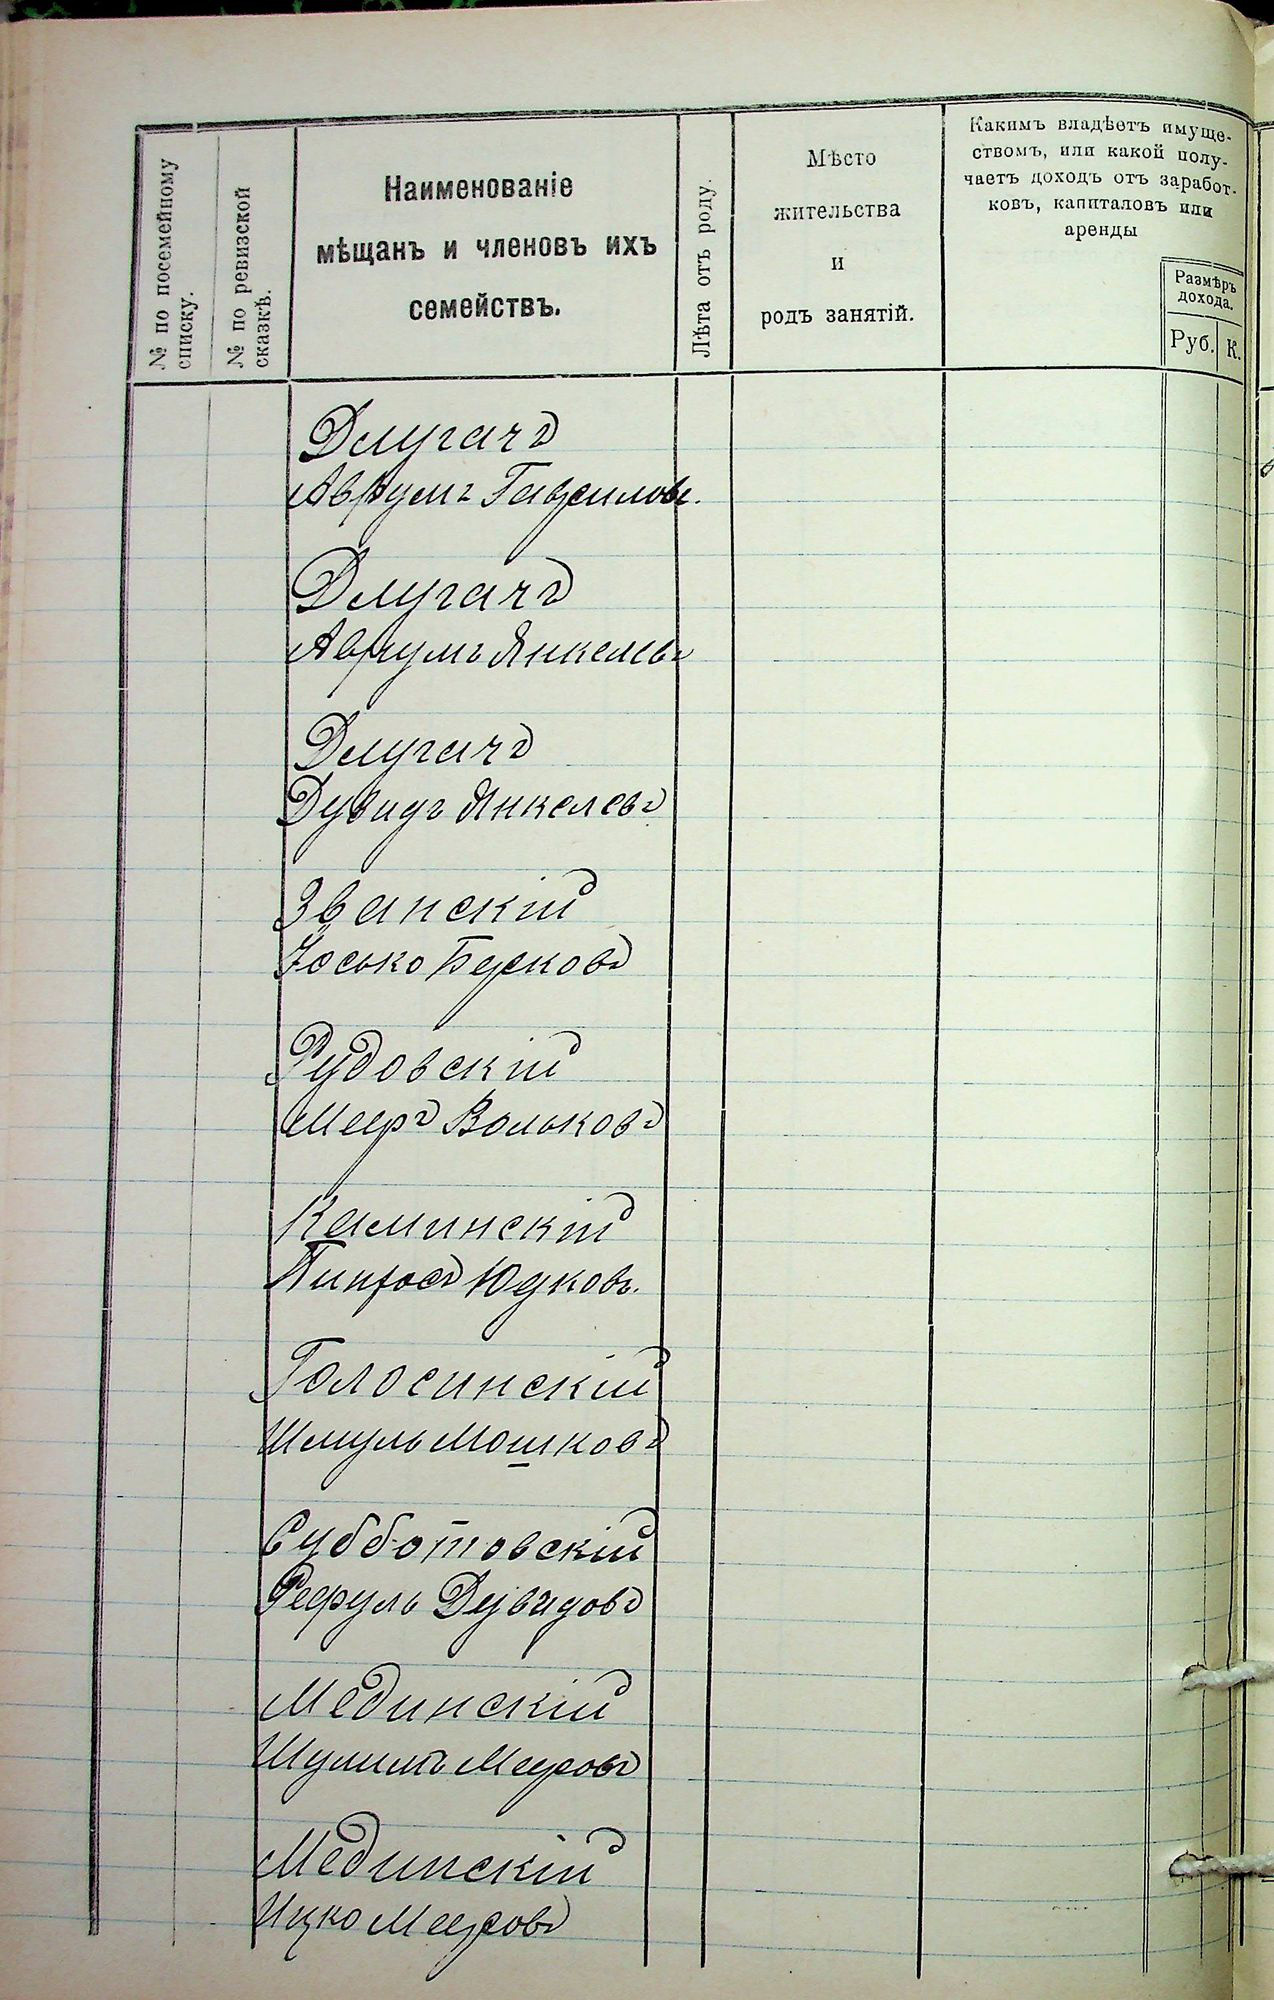 № по посемейному
списку.
№ по ревизской
сказкѣ.
Наименованіе
мѣщанъ и членовъ ихъ
семействъ.
Лѣта отъ роду.
Мѣсто
жительства
и
родъ занятій.
Какимъ владѣетъ имуще-
ствомъ, или какой полу-
чаетъ доходъ отъ заработ-
ковъ, капиталовъ или
аренды
Размѣръ
дохода.
Руб. К.
Длугачъ
Аврумъ Гаврилов.
Длугачъ
Аврумъ Янкелевъ
Длугачъ
Дувидъ Янкелевъ
Званскій
Йосько Берковъ
Рудовскій
Мееръ Вольковъ
Каминскій
Пинхосъ Юдковъ.
Голосинскій
Шмуль Мошковъ
Субботовскій
Рефуль Дувидовъ
Мединскій
Шулимъ Мееровъ
Мединскій
Ицко Мееровъ